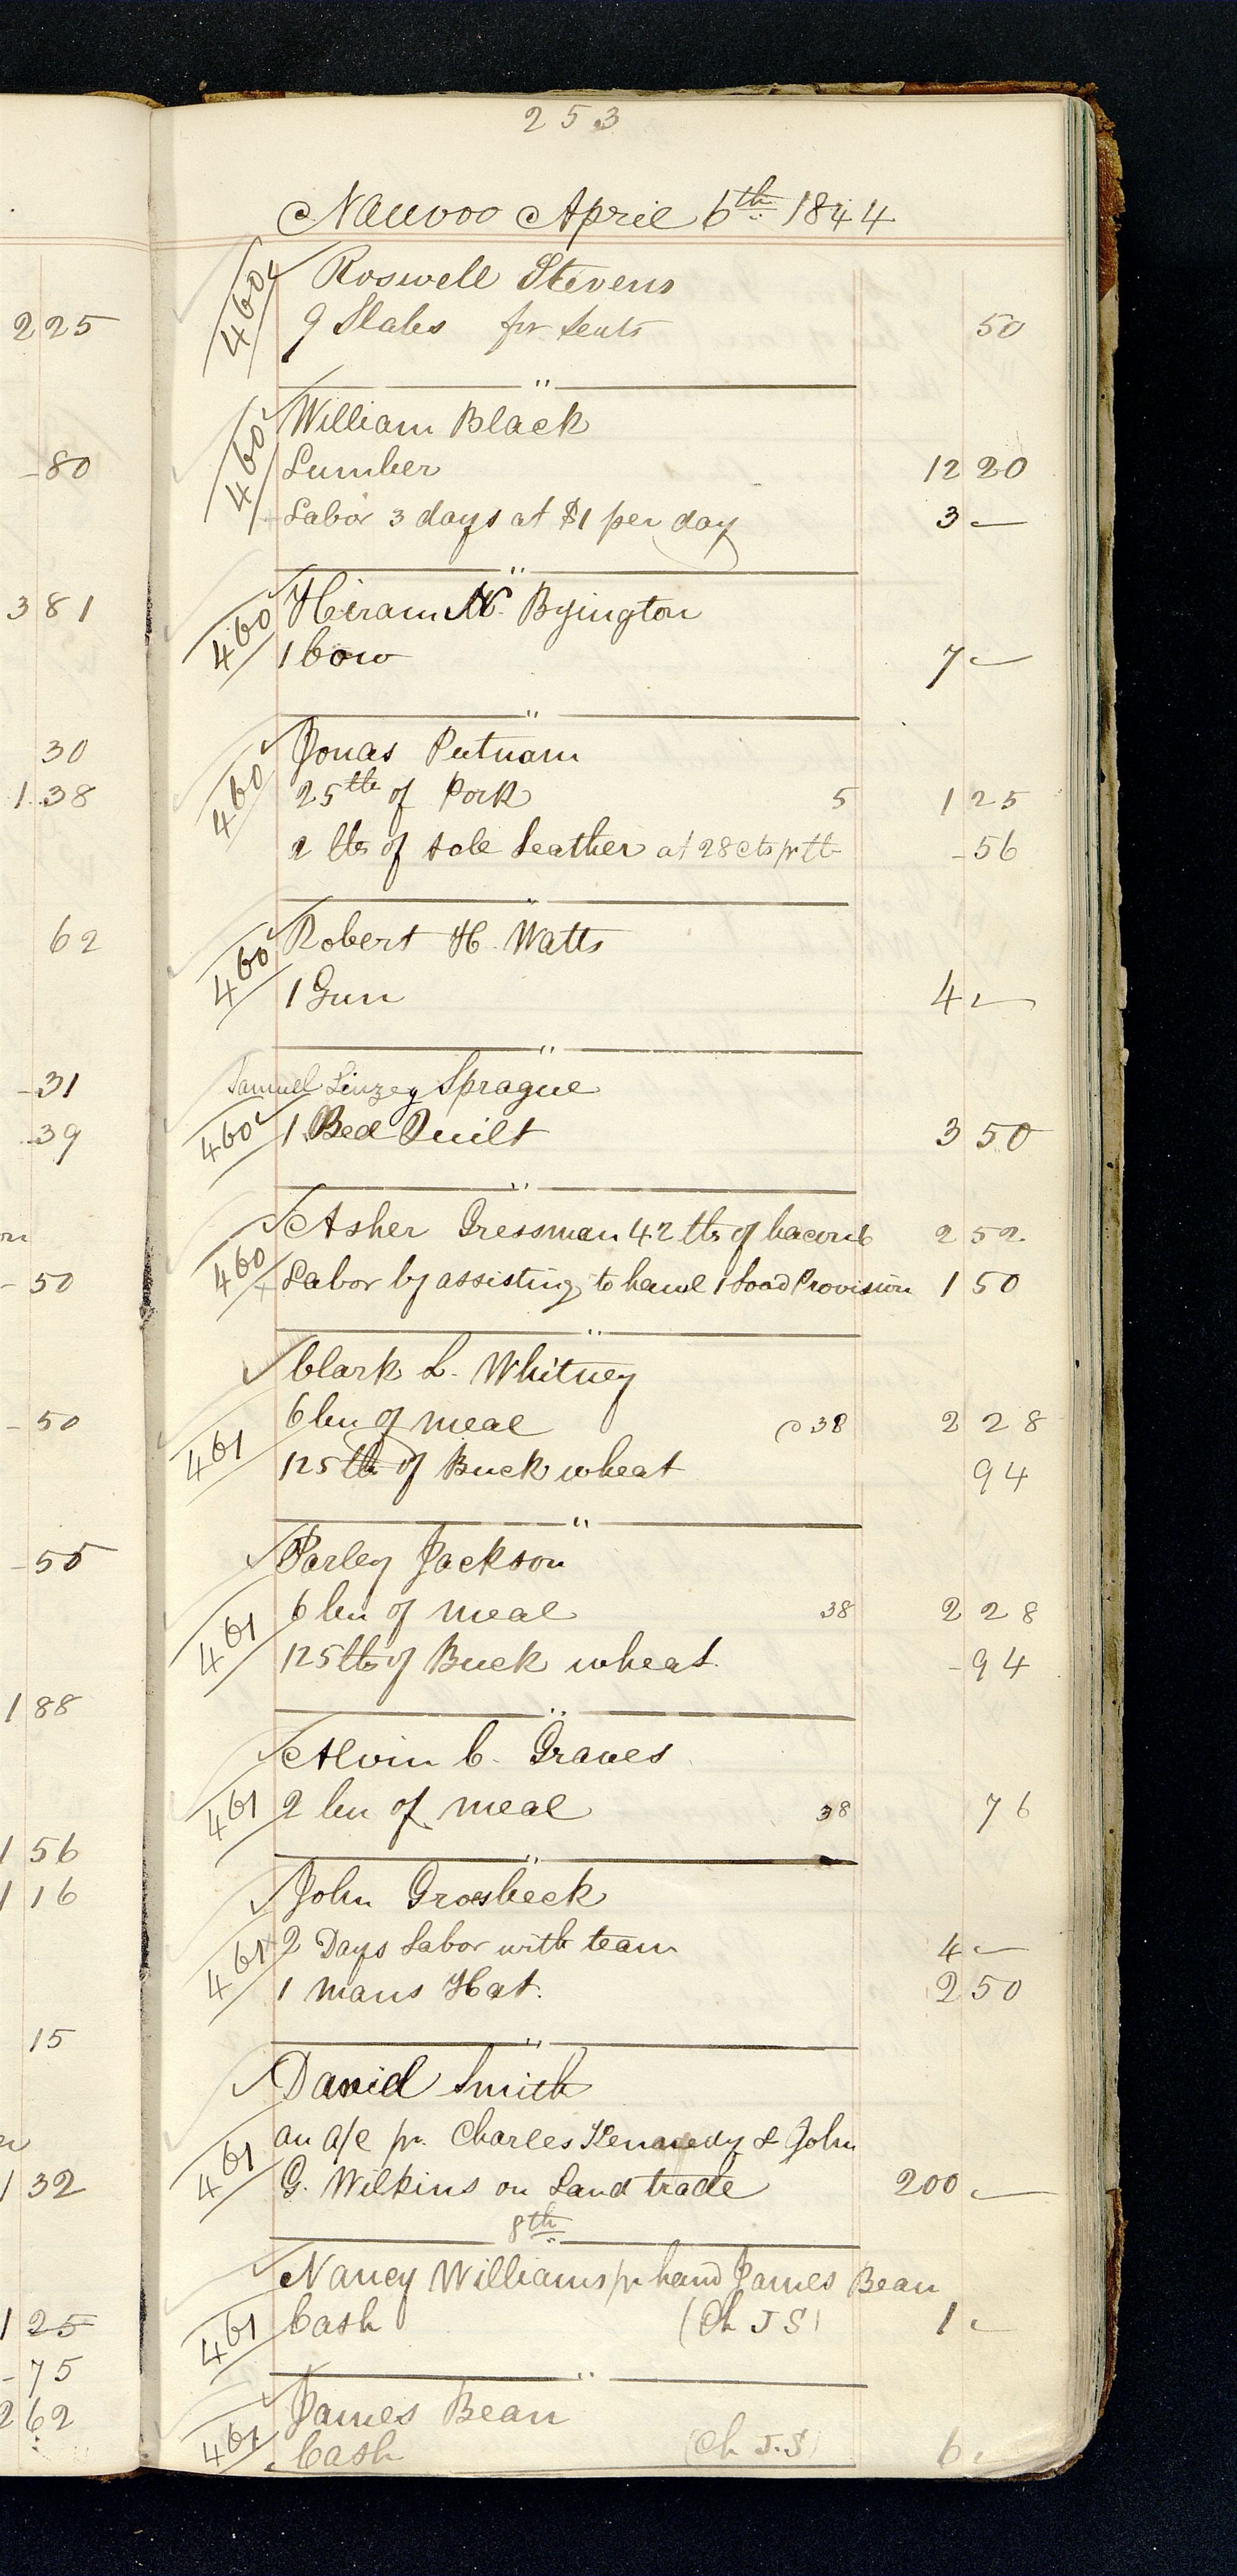 253
Nauvoo April 6th 1844
460 Roswell Stevens
9 Slabs for seats 50
"
460 William Black
Lumber 12 20
Labor 3 days at $1 per day 3 —
"
460 Hiram N. Byington
1 Cow 7 —
"
460 Jonas Putnam
25 lb of Pork 5 1 25
2 lbs of sole Leather at 28 cts pr lb - 56
"
460 Robert H. Watts
1 Gun 4 —
"
Samuel Linzey Sprague
460 1 Bed Quilt 3 50
"
460 Asher Gressman 42 lbs of bacon 6 2 52
Labor by assisting to hawl 1 Load Provision 1 50
"
Clark L. Whitney
461 6 bu of meal @ 38 2 28
125 lb of Buck wheat 94
"
Parley Jackson
461 6 bu of meal 38 2 28
125 lbs of Buck wheat - 94
"
Alvin C. Graves
461 2 bu of meal 38 76
"
John Groesbeck
461 2 Days Labor with team 4 —
1 mans Hat. 2 50
"
David Smith
461 an a/c pr. Charles Kennedy & John
G. Wilkins on Land trade 200 —
8th
Nancy Williams pr hand James Bean
461 Cash (Ch J S) 1 —
"
James Bean
461 Cash (Ch J.S) 6 —
225
-80
3 81
30
1 38
62
-31
39
-50
-50
-55
1 88
1 56
1 16
15
1 32
1 25
-75
2 62